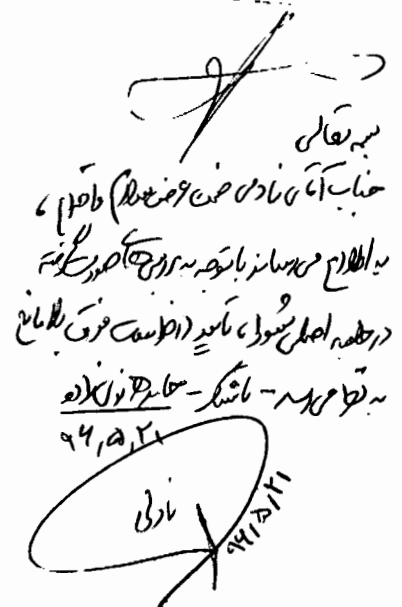 بسمه تعالی
جناب آقای نادمی ضمن عرض سلام و احترام ،
به اطلاع می‌رساند با توجه به بررسی‌های صورت گرفته
در جلسه اصلی شورا ، تأیید درخواست فوق بلامانع
به نظر می‌رسد - باتشکر -
۹۶,۵,۲۱
۹۶/۵/۲۱